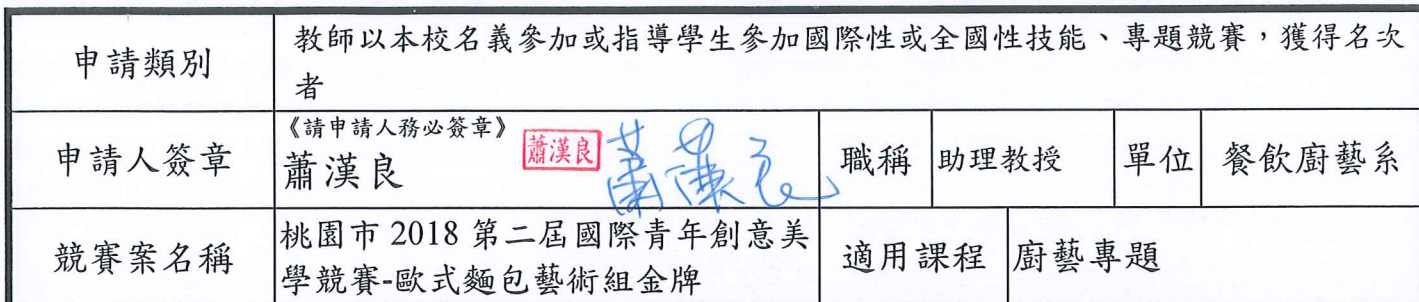 申請類別
教師以本校名義參加或指導學生參加國際性或全國性技能、專題競賽，獲得名次
者
申請人簽章
《請申請人務必簽章》
蕭漢良
蕭漢良
蕭漢良
職稱
助理教授
單位
餐飲廚藝系
競賽案名稱
桃園市 2018 第二屆國際青年創意美
學競賽-歐式麵包藝術組金牌
適用課程
廚藝專題